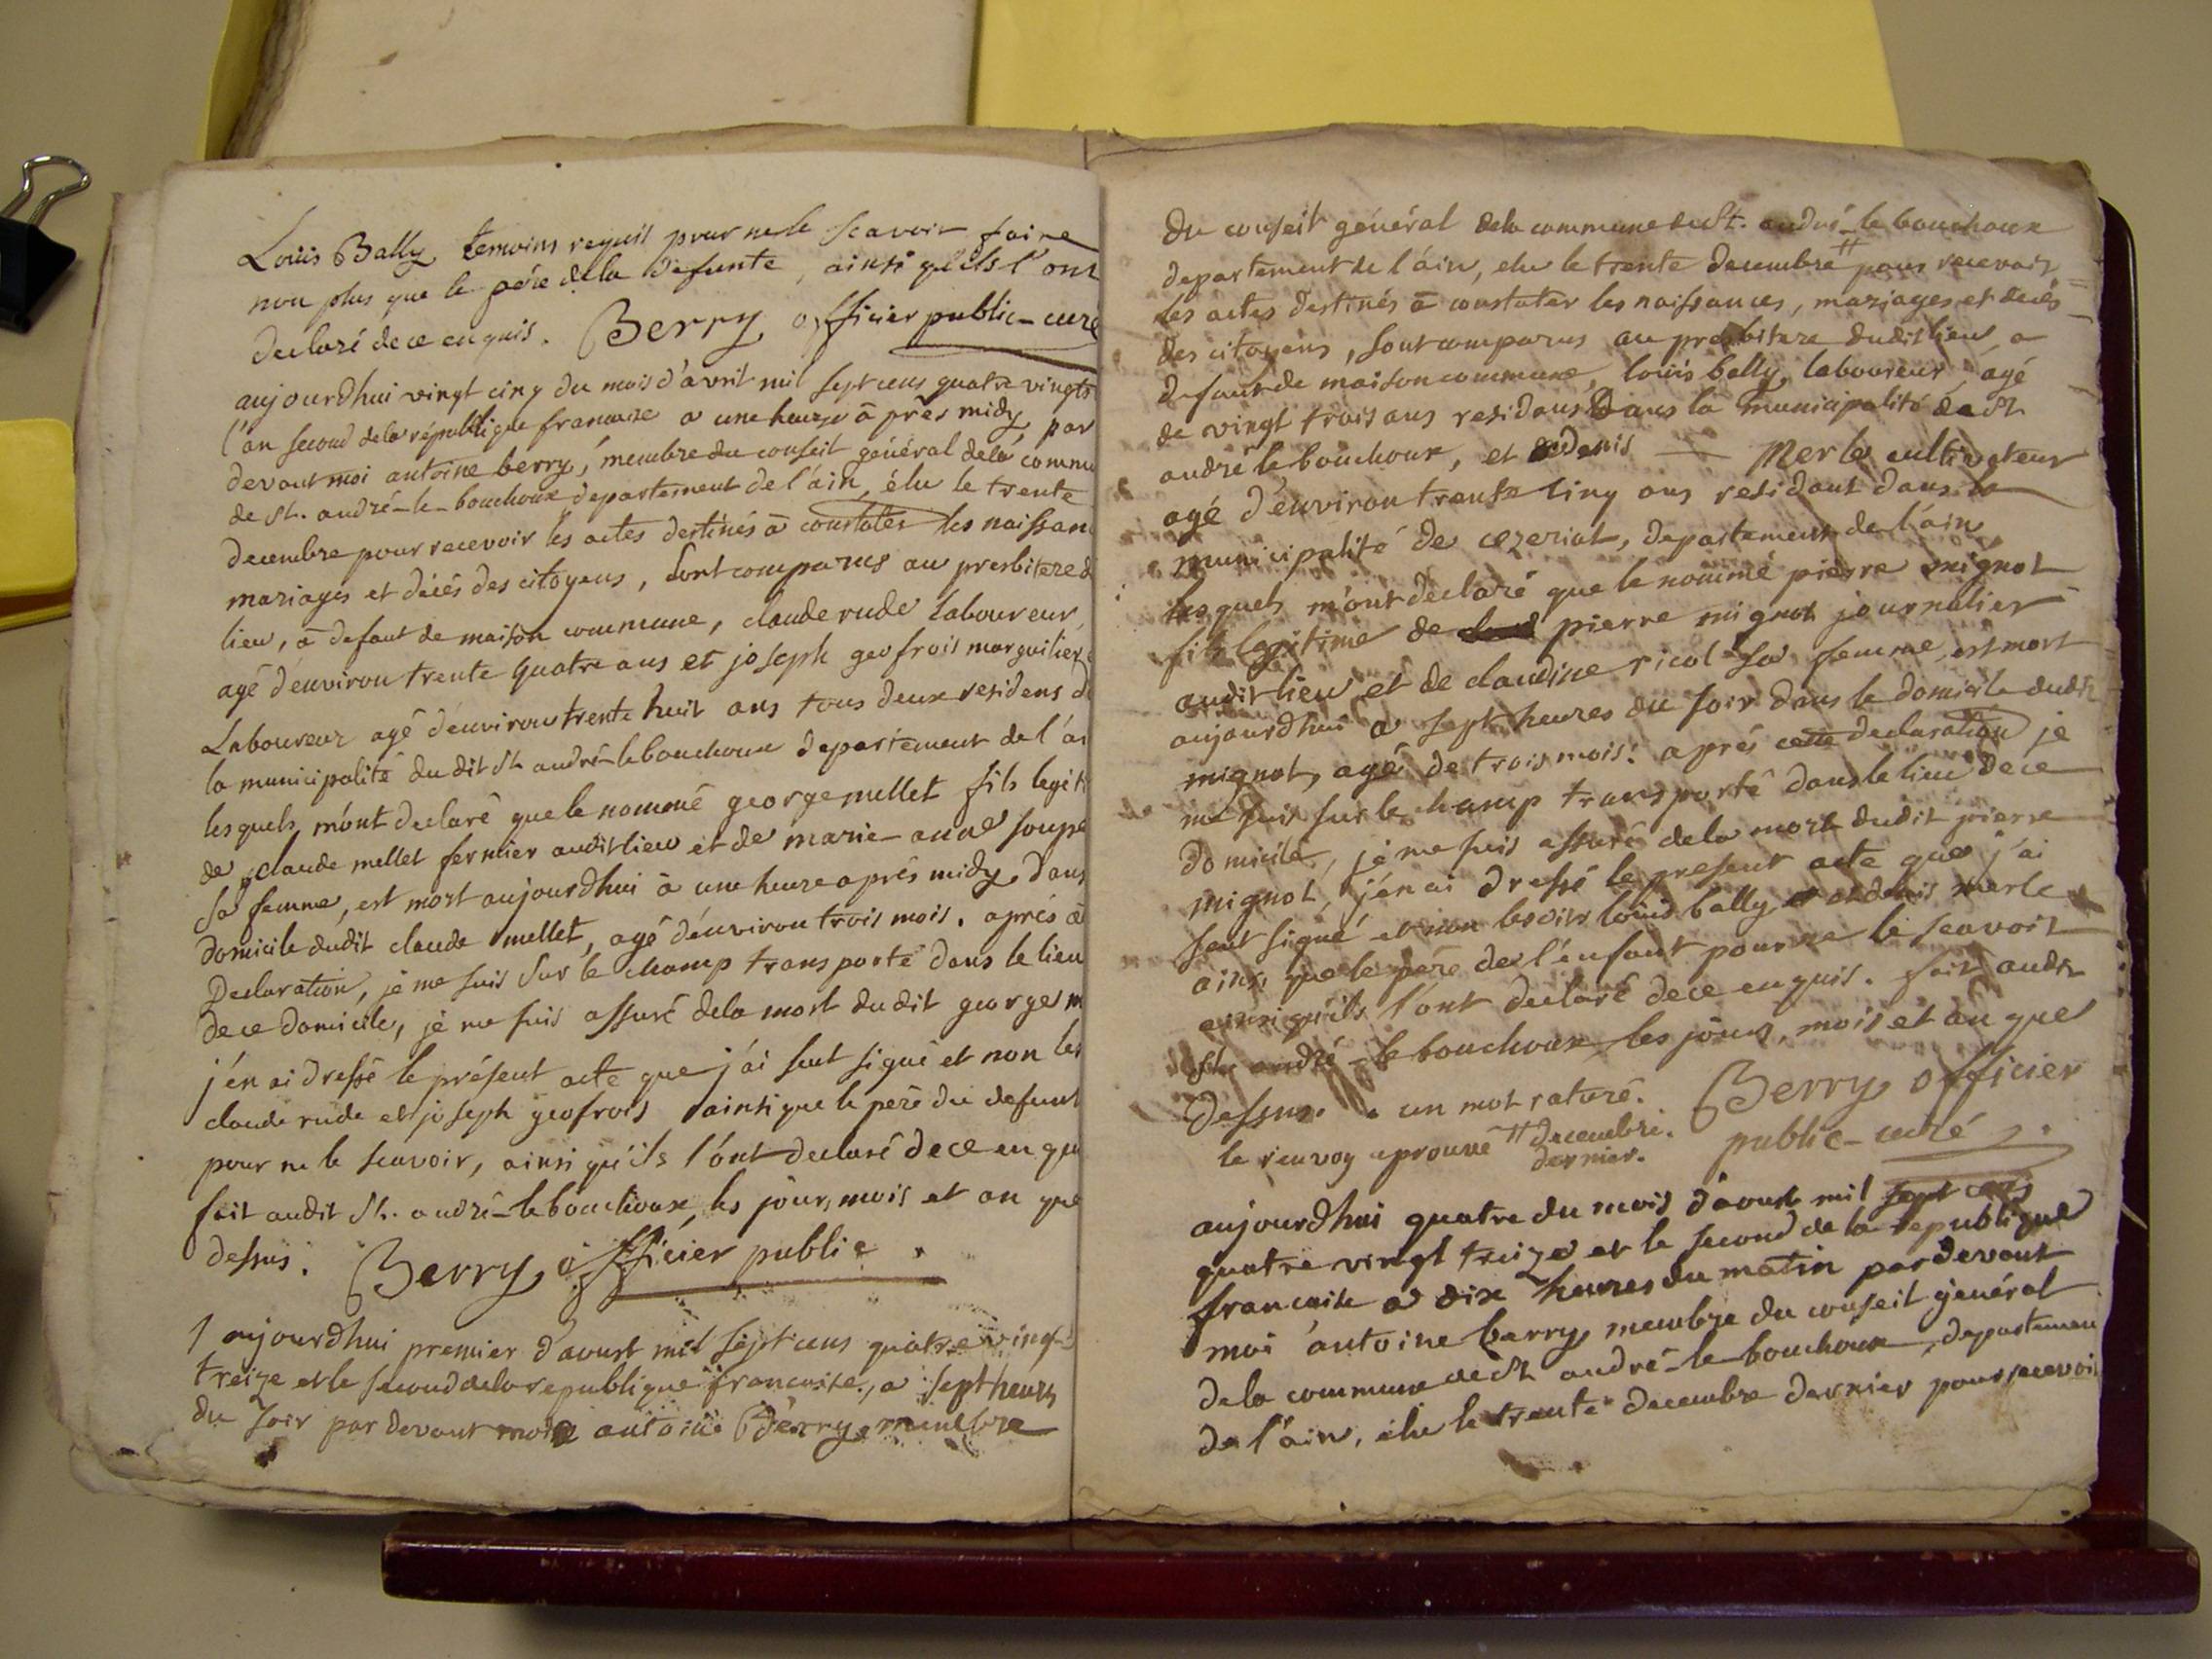 Louis Bally temoins requis pour ne le scavoir faire
non plus que le père dela defunte, ainsi qu'ils l'ont
declaré de ce enquis. Berry officier public-curé
aujourdhui vingt cinq du mois d'avril mil sept cens quatre vingts
l'an second dela république francaise a une heure après midy, par
devant moi antoine berry, membre du conseil général dela commu
de St. andré-le-bouchoux departement de l'ain, élu le trente
decembre pour recevoir les actes destinés à constater les naissan
mariages et décés des citoyens, sont comparus au presbitere d
lieu, à defaut de maison commune, claude rude laboureur,
agé d'environ trente quatre ans et joseph geofrois marguilier,
Laboureur agé d'environ trente huit ans tous deux residens d
la municipalité du dit St andré-le bouchoux departement de l'ai
lesquels m'ont declaré que le nommé george mellet fils legiti
de claude mellet fermier audit lieu et de marie-anne soupe
sa femme, est mort aujourdhui à une heure après midy, dans
domicile dudit claude mellet, agé d'environ trois mois. après
Declaration, je me suis sur le champ transporté dans le lieu
de ce domicile, je me suis assuré dela mort du dit george m
j'en ai dressé le présent acte que j'ai seul signé et non les
claude rude et joseph geofrois ainsi que le pere du defunt
pour ne le scavoir, ainsi qu'ils l'ont declaré de ce enqu
fait audit St. andré-le bouchoux, les jour, mois et an que
dessus. Berry, officier public.
1 aujourdhui premier d'aoust mil sept cens quatre vingt
treize et le second dela republique francaise, a sept heures
du soir par devant moi antoine Berry, membre
du conseil général dela commune de St. andré-le bouchoux
departement de l'ain, elu le trente decembre # pour recevoir
les actes destinés à constater les naissances, mariages et decés
des citoyens, sont comparus au presbitere dudit lieu, a
defaut de maison commune, louis bally, laboureur, agé
de vingt trois ans residans Dans la municipalité de St
andré le bouchoux, et denis Merle cultivateur
agé d'environ trente cinq ans residant dans la
municipalité de cezeriat, departement de l'ain
lesquels m'ont déclaré que le nommé pierre mignot
fils legitime de pierre mignot journalier
audit lieu et de claudine ricol sa femme, est mort
aujourdhui a sept heures du soir dans le domicile dudit
mignot, agé de trois mois: aprés cette declaration je
me suis sur le champ transporté dans le lieu de ce
domicile, je me suis assuré dela mort dudit pierre
mignot, j'en ai dressé le present acte que j'ai
seul signé et non lesdits louis bally et denis merle
ainsi que le père de l'enfant pour ne le scavoir
ainsi qu'ils l'ont declaré de ce enquis. fait audit
St. andré-le bouchoux les jours, mois et an que
Dessus. un mot raturé. Berry officier
le renvoy aprouvé # decembre. public-curé
dernier.
aujourdhui quatre du mois d'aoust mil sept cens
quatre vingt treize et le second de la republique
francaise a dix heures du matin pardevant
moi antoine berry, membre du conseil général
dela commune de St andré-le-bouchoux, departemen
de l'ain, élu le trente decembre dernier pour recevoir